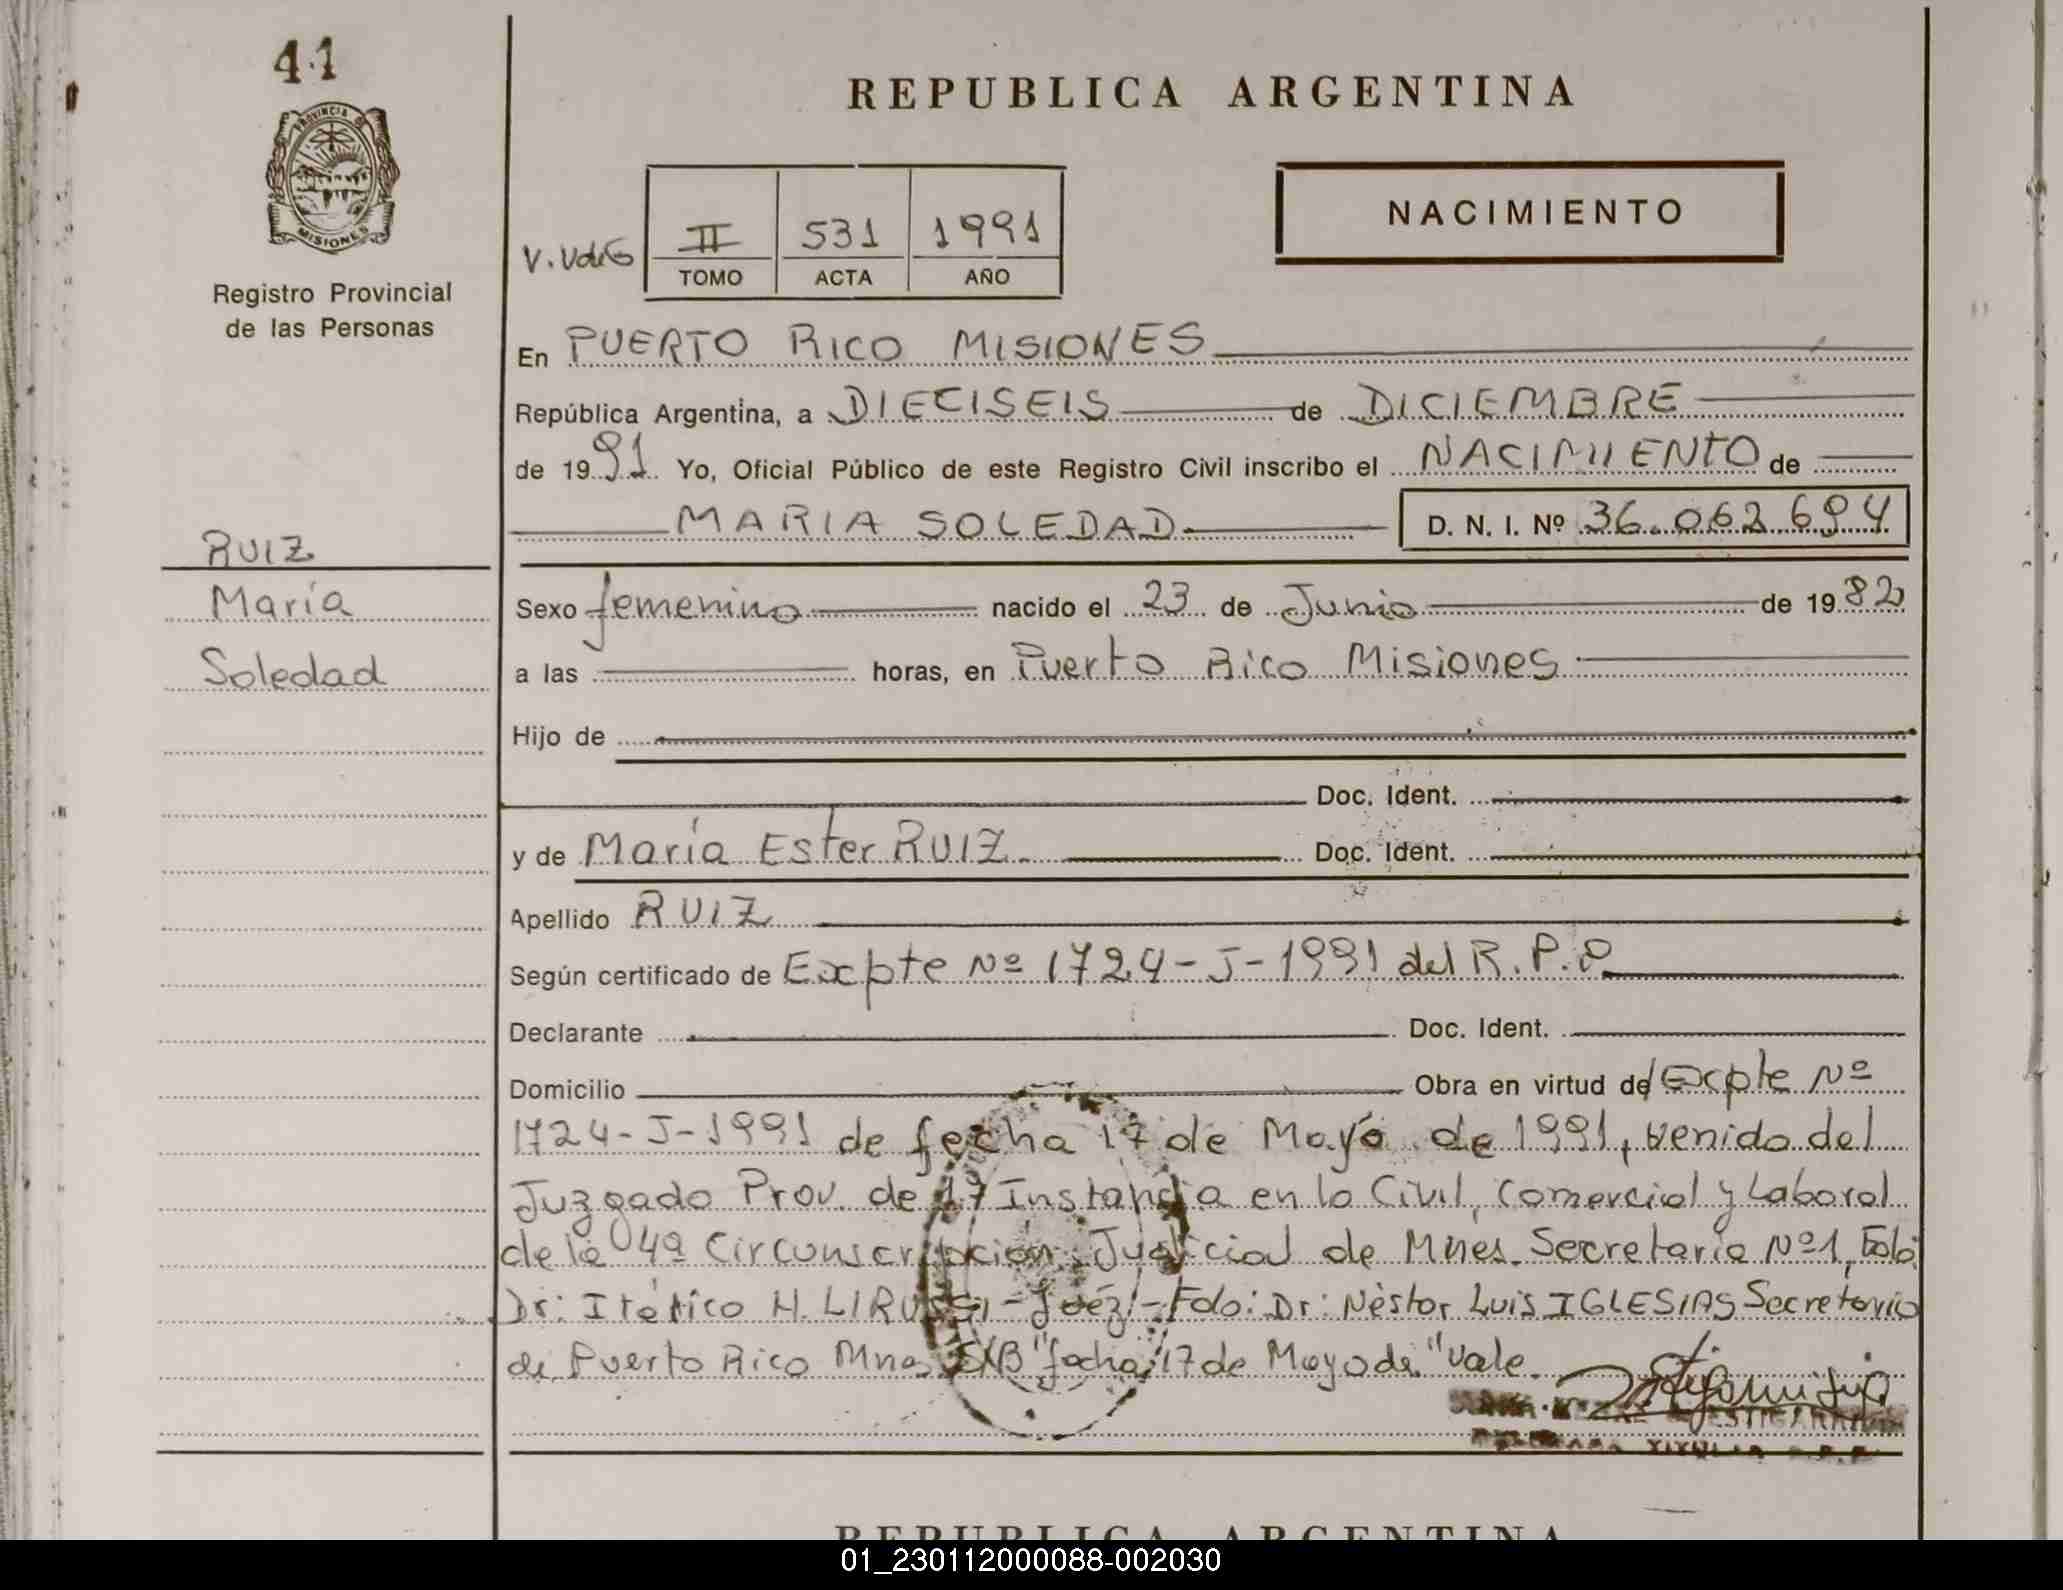 41
PROVINCIA DE
MISIONES
Registro Provincial
de las Personas
REPUBLICA ARGENTINA
NACIMIENTO
II 531 1991
TOMO ACTA AÑO
En PUERTO RICO MISIONES
República Argentina, a DIECISEIS de DICIEMBRE
de 1991 Yo, Oficial Público de este Registro Civil inscribo el NACIMIENTO de
MARIA SOLEDAD D. N. I. Nº 36.062694
RUIZ
María
Soledad
Sexo femenino nacido el 23 de Junio de 1982
a las horas, en Puerto Rico Misiones
Hijo de
Doc. Ident.
y de María Ester RUIZ. Doc. Ident.
Apellido RUIZ
Según certificado de Expte Nº 1724-J-1991 del R.P.P
Declarante Doc. Ident.
Domicilio Obra en virtud de/Expte Nº
1724-J-1991 de fecha 17 de Mayo de 1991, venido del
Juzgado Prov. de 1ª Instancia en lo Civil, Comercial y Laboral
de la 4ª Circunscripción Judicial de Mnes. Secretaría Nº1, Fdo:
Dr: Itálico H. LIRUSSI-Juéz-Fdo: Dr: Nèstor Luis IGLESIAS Secretario
de Puerto Rico Mnes "fecha 17 de Mayo de" Vale.
REPUBLICA ARGENTINA
01_230112000088-002030